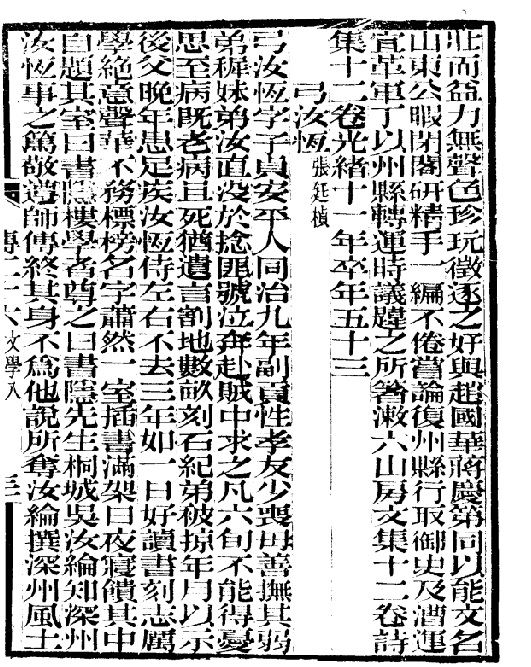 壯而益力無聲色珍玩徵逐之好與趙國華蔣慶第同以能文名
山東公暇閉閣研精手一編不倦嘗論復州縣行取御史及漕運
宜革軍丁以州縣轉運時議韙之所箸漱六山房文集十二卷詩
集十二卷光緒十一年卒年五十三
弓汝恆 張廷楨
弓汝恆字子貞安平人同治九年副貢性孝友少喪母善撫其弱
弟穉妹弟汝直没於捻匪號泣奔赴賊中求之凡六旬不能得憂
思至病既老病且死猶遺言割地數畝刻石紀弟被掠年月以示
後父晚年患足疾汝恆侍左右不去三年如一日好讀書刻志厲
學絶意聲華不務標榜名字蕭然一室插書滿架日夜寢饋其中
自題其室曰書隱樓學者尊之曰書隱先生桐城吳汝綸知深州
汝恆事之篤敬遵師傳終其身不爲他説所奪汝綸撰深州風土
傳二十六 文學八 三